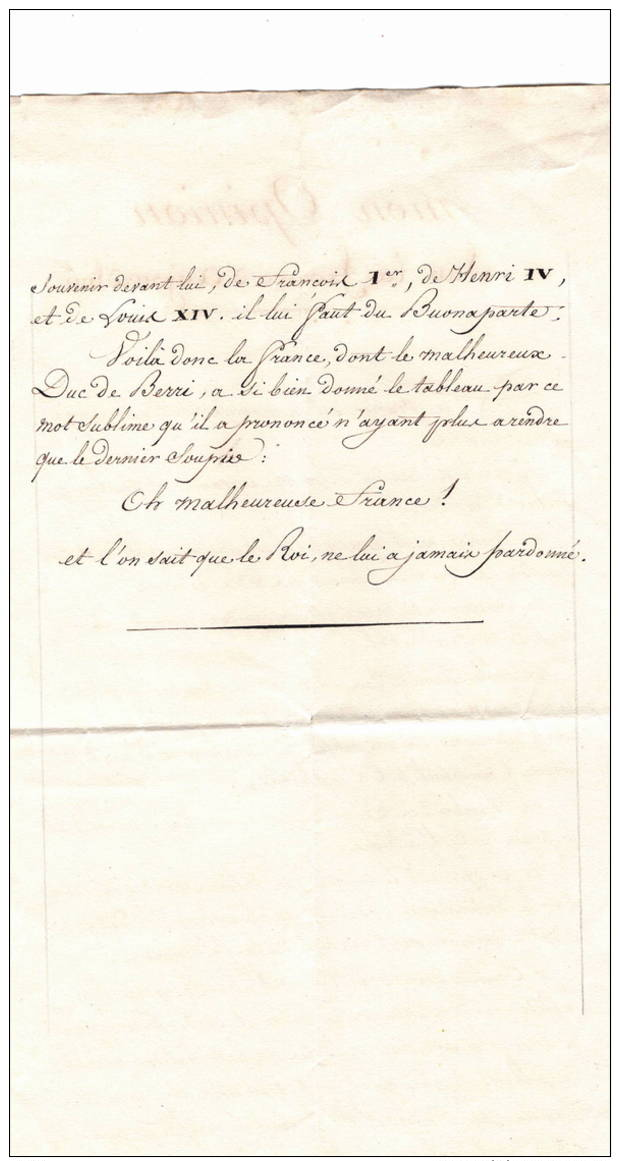 souvenir devant lui, de Francois 1er, de Henri IV,
et de Louis XIV. il lui faut du Buonaparte.
Voilà donc la France, dont le malheureux
Duc de Berri, a si bien donné le tableau par ce
mot sublime qu'il a prononcé n'ayant plus a rendre
que le dernier soupir :
Oh malheureuse France !
et l'on sait que le Roi, ne lui a jamais pardonné.